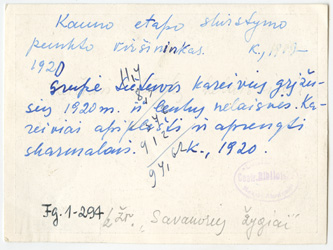 Kauno etapo skirstymo
punkto viršininkas. K., 1919–
1920
Grupė Lietuvos kareivių grįžu-
sių 1920 m. iš lenkų nelaisvės. Ka-
reiviai apiplėšti ir aprengti
skarmalais. K., 1920.
Fg. 1-294
žr. "Savanorių žygiai"